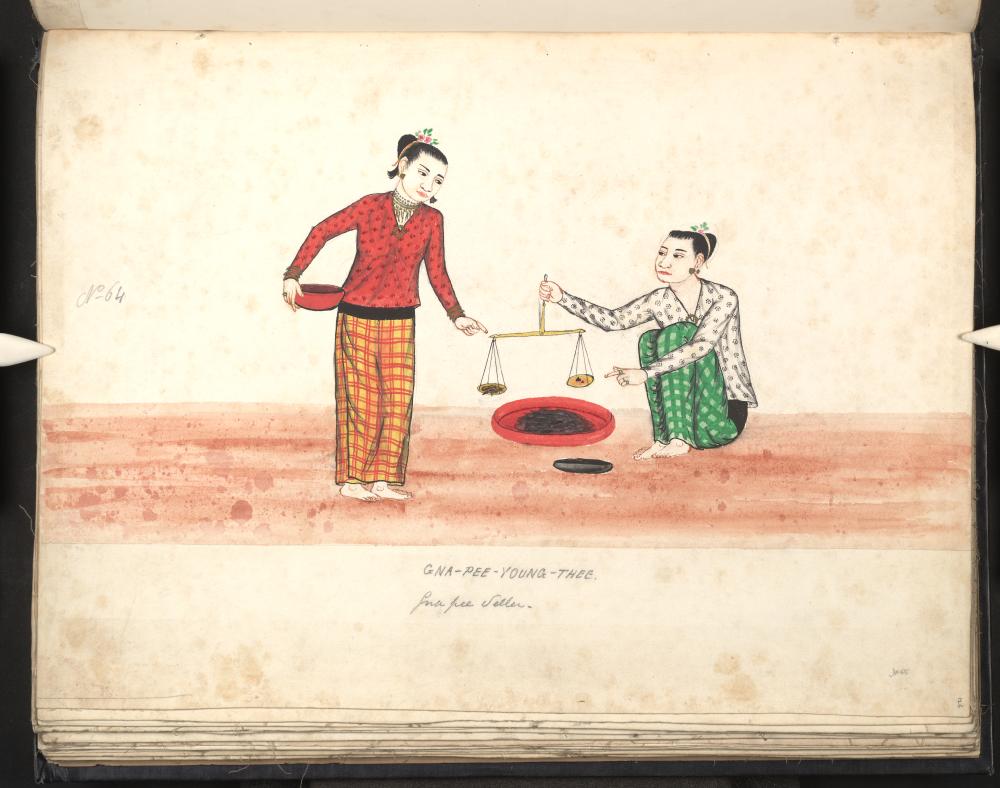 Nº 64
GNA-PEE-YOUNG-THEE.
Gna pee Seller.